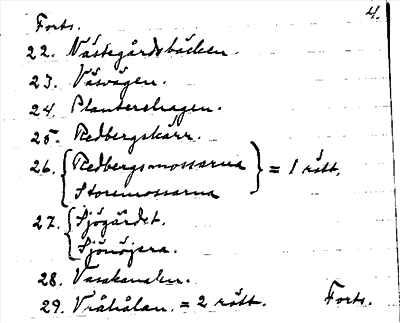 4.
Forts.
22. Nästegårdsbäcken.
23. Väsvägen.
24. Planterehagen.
25. Redbergskärr.
26. { Redbergsmossarna } = 1 rätt.
Storemossarna
27. { Sjögärdet.
Sjönöjera.
28. Vasakanalen.
29. Vråhålan. = 2 rätt. Forts.